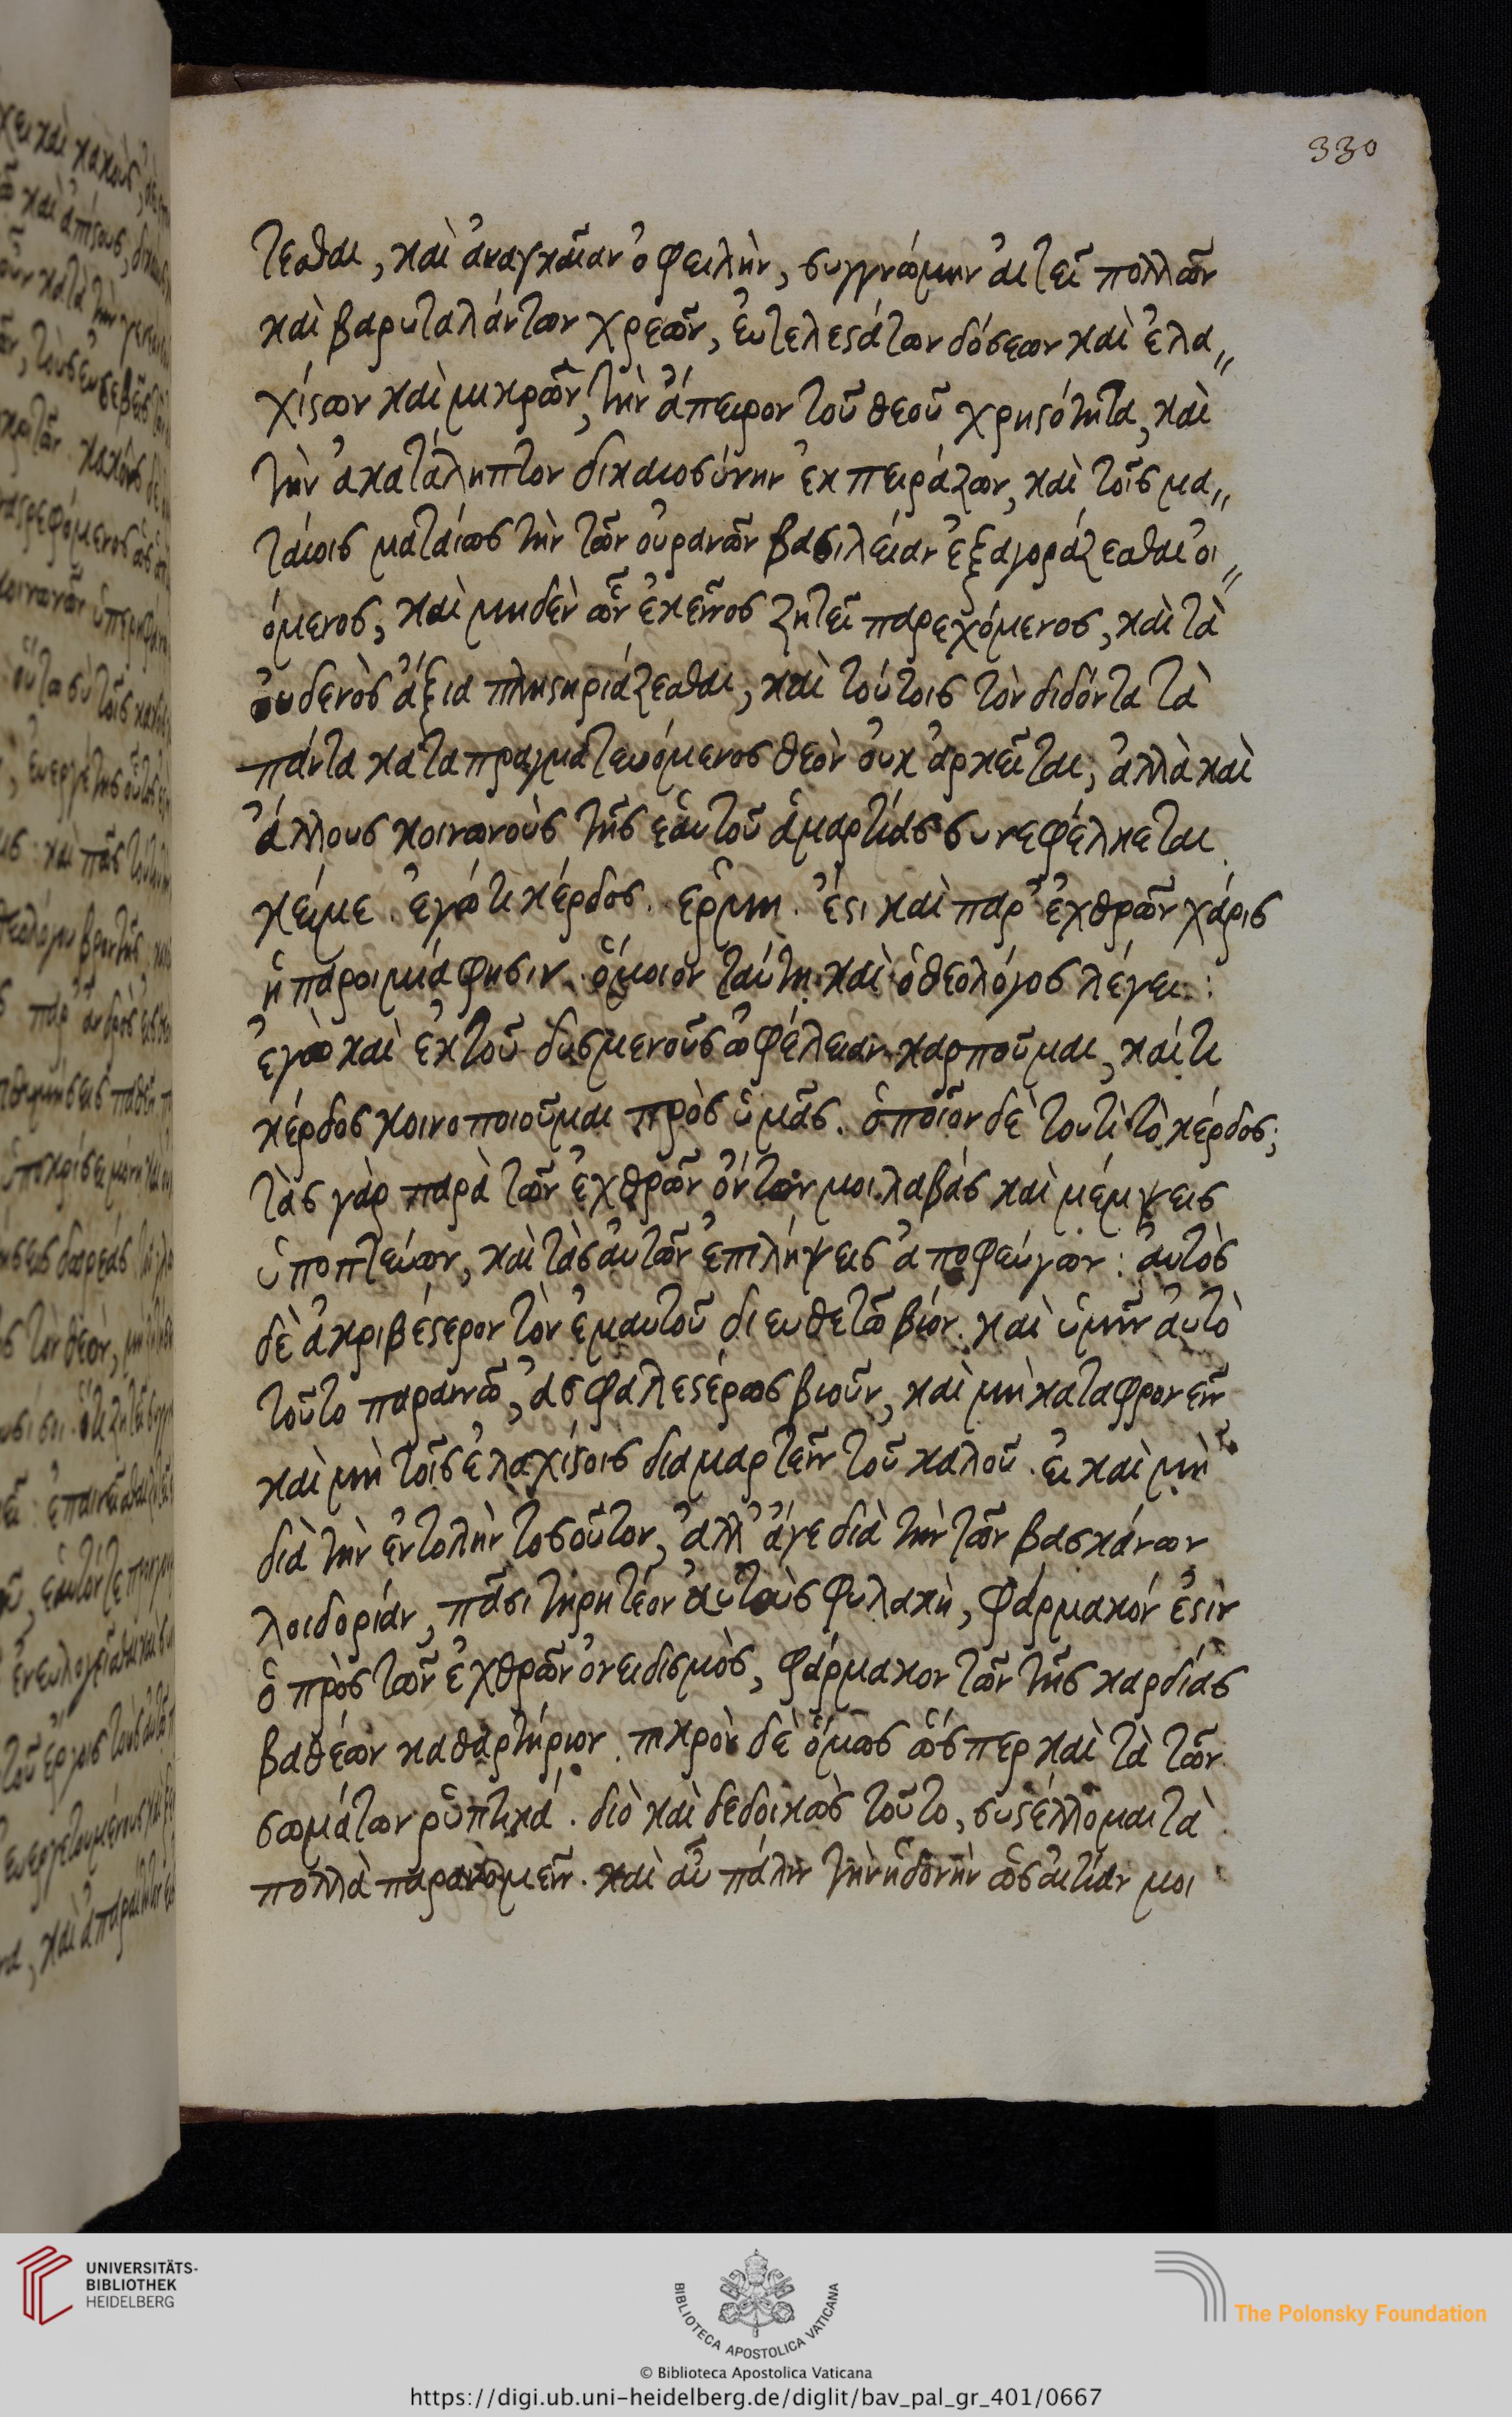 330
τεσθαι, καὶ ἀναγκαίαν ὀφειλὴν, συγγνώμην αἰτεῖ πολλῶν
καὶ βαρυταλάντων χρεῶν, εὐτελεστάτων δόσεων καὶ ἐλα„
χίστων καὶ μικρῶν, τὴν ἄπειρον τοῦ θεοῦ χρηστότητα, καὶ
τὴν ἀκατάληπτον δικαιοσύνην ἐκπειράζων, καὶ τοῖς μα„
ταίοις ματαίως τὴν τῶν οὐρανῶν βασιλείαν ἐξαγοράζεσθαι οἰ„
όμενος, καὶ μηδὲν ὧν ἐκεῖνος ζητεῖ παρεχόμενος, καὶ τὰ
οὐδενὸς ἄξια πληστηριάζεσθαι, καὶ τούτοις τὸν διδόντα τὰ
πάντα καταπραγματευόμενος θεὸν οὐκ ἀρκεῖται, ἀλλὰ καὶ
ἄλλους κοινωνοὺς τῆς ἑαυτοῦ ἁμαρτίας συνεφέλκεται
κείμε. ἐγώ τι κέρδος. ἑρμη. ἔστι καὶ παρ' ἐχθρῶν χάρις
ἡ παροιμία φησιν. ὅμοιον ταύτῃ καὶ ὁ θεολόγος λέγει:
ἐγὼ καὶ ἐκ τοῦ δυσμενοῦς ὠφέλειαν καρποῦμαι, καί τι
κέρδος κοινοποιοῦμαι πρὸς ὑμᾶς. ὁποῖον δὲ τουτὶ τὸ κέρδος;
τὰς γὰρ παρὰ τῶν ἐχθρῶν ὄντων μοι λαβὰς καὶ μέμψεις
ὑποπτεύων, καὶ τὰς αὐτῶν ἐπιλήψεις ἀποφεύγων: αὐτὸς
δὲ ἀκριβέστερον τὸν ἐμαυτοῦ διευθετῶ βίον. καὶ ὑμῖν αὐτὸ
τοῦτο παραινῶ, ἀσφαλεστέρως βιοῦν, καὶ μὴ καταφρονεῖν
καὶ μὴ τοῖς ἐλαχίστοις διαμαρτεῖν τοῦ καλοῦ. εἰ καὶ μὴ
διὰ τὴν ἐντολὴν τοσοῦτον, ἀλλ' ἄγε διὰ τὴν τῶν βασκάνων
λοιδορίαν, πᾶσι τηρητέον αὐταὺς φυλακὴ, φάρμακόν ἐστὶν
ὁ πρὸς τῶν ἐχθρῶν ὀνειδισμὸς, φάρμακον τῶν τῆς καρδίας
βαθέων καθαρτήριον. πικρὸν δὲ ὅμως ὥσπερ καὶ τὰ τῶν
σωμάτων ῥυπτικά. διὸ καὶ δεδοικὼς τοῦτο, συστέλλομαι τὰ
πολλὰ παρανομεῖν. καὶ αὖ πάλιν τὴν ἡδονὴν ὡς αἰτίαν μοι
UNIVERSITÄTS-
BIBLIOTHEK
HEIDELBERG
BIBLIOTECA APOSTOLICA VATICANA
The Polonsky Foundation
© Biblioteca Apostolica Vaticana
https://digi.ub.uni-heidelberg.de/diglit/bav_pal_gr_401/0667